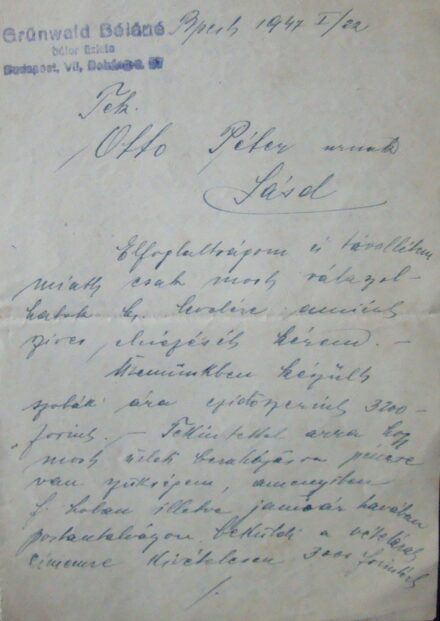 Grünwald Béláné
bútor üzlete
Budapest, VII, Dohány u.
Bpest, 1947 I/22
Tek.
Otto Péter urnak
Sásd
Elfoglaltságom és távollétem
miatt csak most válaszol-
hatok b. levelére amiért
szives elnézését kérem. –
Üzemünkben készült
szobák ára 3200
forint. – Tekintettel arra hogy
most üzlet berakásra pénzre
van szükségem, amennyiben
f. hóban illetve január havában
postautalványon beküldi a vételárat
címemre kivételesen 3000 forintért
/.